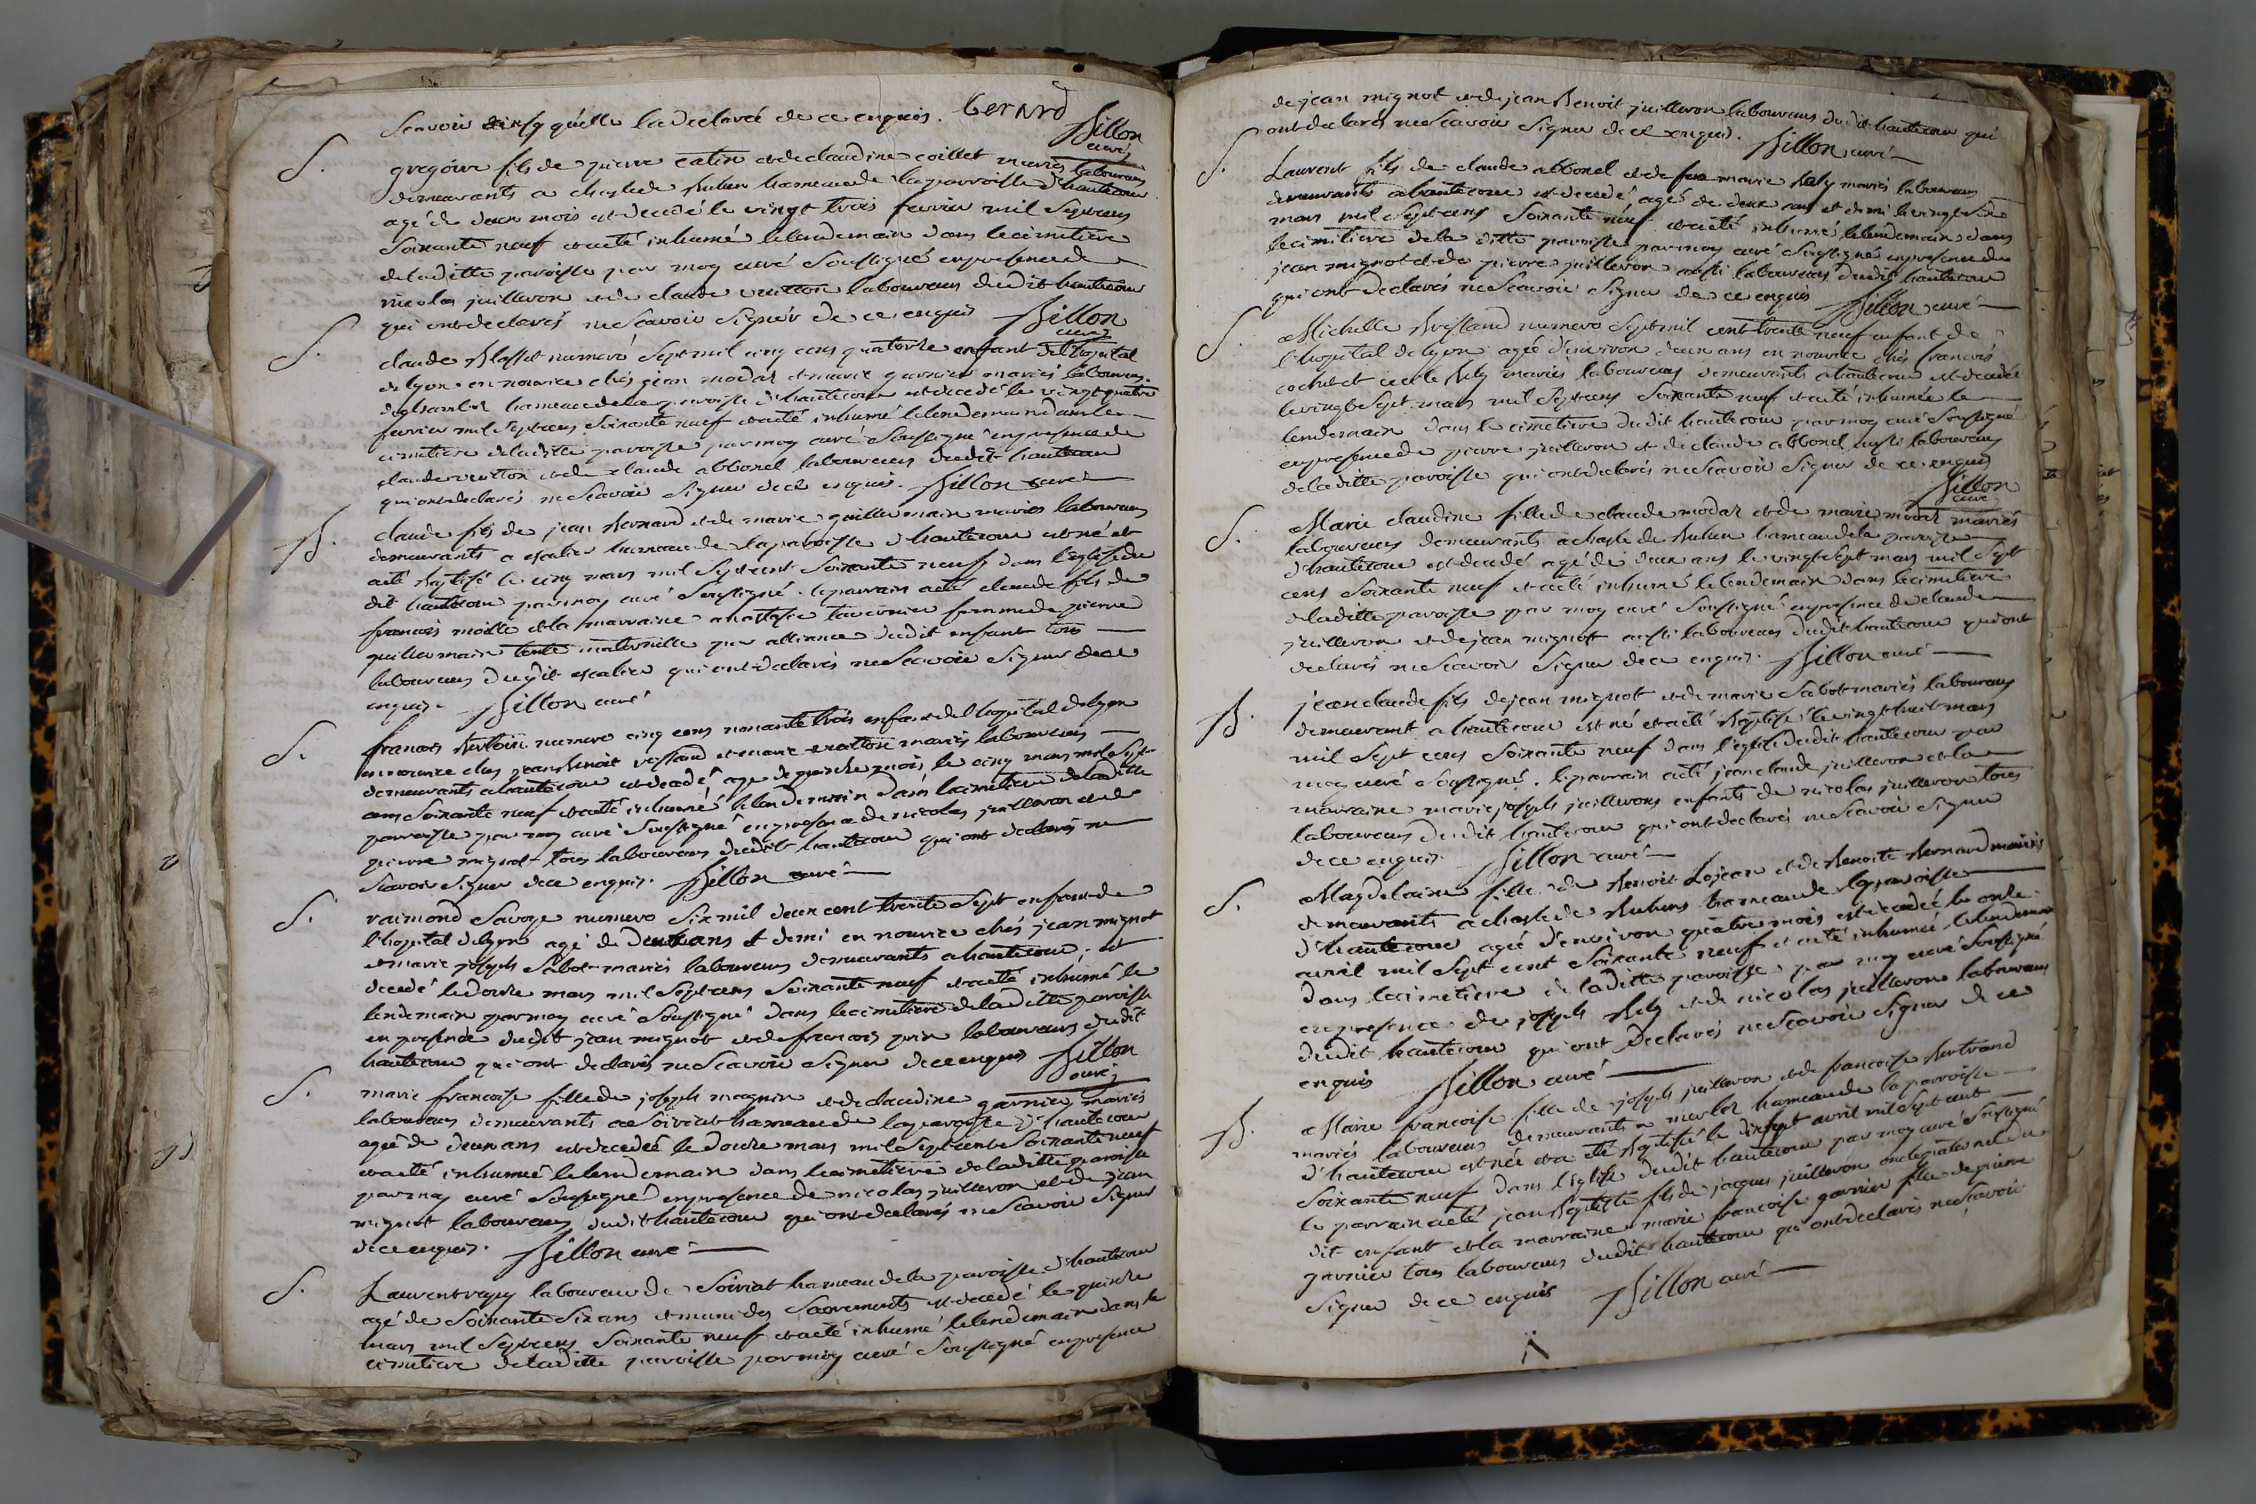 Scavoir ainsy quelle la declaré de ce enquis. Gerard
Billon
curé
S.
gregoire fils de pierre catin et de claudine coillet mariés laboureurs
demeurants a chasle de hameau de la parroisse d'hautecour
agé de deux mois est decedé le vingt trois fevrier mil sept cens
Soixante neuf et a eté inhumé le lendemain dans le cimetiere
de la ditte paroisse par moy curé Soussigné en presence de
nicolas juilleron et de claude vuitton laboureurs dudit hautecour
qui ont declarés ne Scavoir Signer de ce enquis Billon
curé
S.
claude numero Sept mil cinq cens quatorze enfant de l'hopital
de lyon en nourice chés jean modas et marie garnier mariés laboureurs
hameau de la paroisse d'hautecour est decedé le vingt quatre
fevrier mil sept cens Soixante neuf et a eté inhumé le lendemain dans le
cimetiere de la ditte paroisse par moy curé Soussigné en presence de
claude vuitton et de claude abbonel laboureurs dudit hautecour
qui ont declarés ne Scavoir Signer de ce enquis. Billon curé
B.
claude fils de jean bernard et de marie guillermain mariés laboureurs
demeurants a hameau de la paroisse d'hautecour est né et
a eté baptisé le cinq mars mil sept cent Soixante neuf dans l'eglise du
dit hautecour par moy curé Soussigné. le parrain a eté claude fils de
francois moille et la marraine anastasie tavernier femme de pierre
guillermain tente maternelle par alliance dudit enfant tous
laboureurs dudit qui ont declarés ne Scavoir Signer de ce
enquis. Billon curé
S.
francois numero cinq cens nonante trois enfant de l'hopital de lyon
en nourice chés jean benoit vessand et marie vuitton mariés laboureurs
demeurants a hautecour est decedé agé de quinze mois le cinq mars mil sept
cens Soixante neuf et a eté inhumé le lendemain dans le cimetiere de la ditte
parroisse par moy curé Soussigné en presence de nicolas juilleron et de
pierre mignot tous laboureurs dudit hautecour qui ont declarés ne
Scavoir Signer de ce enquis. Billon curé
S.
raimond Savoye numero Six mil deux cent trente Sept enfant de
l'hopital de lyon agé de deux ans et demi en nourice chés jean mignot
et marie joseph Sabot mariés laboureurs demeurants a hautecour. est
decedé le douze mars mil sept cens Soixante neuf et a eté inhumé le
lendemain par moy curé Soussigné dans le cimetiere de la ditte paroisse
en presence dudit jean mignot et de francois laboureurs dudit
hautecour qui ont declarés ne Scavoir Signer de ce enquis Billon
curé
S.
marie francoise fille de joseph magnin et de claudine garnier mariés
laboureurs demeurants a Soiriat hameau de la paroisse d'hautecour
agée de deux ans est decedée le douze mars mil sept cent Soixante neuf
et a eté inhumée le lendemain dans le cimetiere de la ditte paroisse
par moy curé Soussigné en presence de nicolas juilleron et de jean
mignot laboureurs dudit hautecour qui ont declarés ne Scavoir Signer
de ce enquis. Billon curé
S.
Laurent laboureur de Soiriat hameau de la paroisse d'hautecour
agé de Soixante Six ans et muni des Sacrements est decedé le quinze
mars mil sept cens Soixante neuf et a eté inhumé le lendemain dans le
cimetiere de la ditte paroisse par moy curé Soussigné en presence
de jean mignot et de jean benoit juilleron laboureurs du dit hautecour qui
ont declarés ne Scavoir Signer de ce enquis. Billon curé
S.
Laurent fils de claude abbonel et de feue marie mariés laboureurs
demeurants a hautecour est decedé agé de deux ans et demi le vingt
mars mil sept cens Soixante neuf et a eté inhumé le lendemain dans
le cimetiere de la ditte paroisse par moy curé Soussigné en presence de
jean mignot et de pierre juilleron aussi laboureurs dudit hautecour
qui ont declarés ne Scavoir Signer de ce enquis Billon curé
S.
Michelle numero Sept mil cent trente neuf enfant de
l'hopital de lyon agée d'environ deux ans en nourice chés francois
cochet et cecile mariés laboureurs demeurants a hautecour est decedée
le vingt Sept mars mil sept cens Soixante neuf et a eté inhumée le
lendemain dans le cimetiere dudit hautecour par moy curé Soussigné
en presence de pierre juilleron et de claude abbonel aussi laboureurs
de la ditte paroisse qui ont declarés ne Scavoir Signer de ce enquis
Billon
curé
S.
Marie claudine fille de claude modas et de marie modas mariés
laboureurs demeurants a chasle de hameau de la paroisse
d'hautecour est decedée agé de deux ans le vingt Sept mars mil Sept
cens Soixante neuf et a eté inhumé le lendemain dans le cimetiere
de la ditte paroisse par moy curé Soussigné en presence de claude
juilleron et de jean mignot aussi laboureurs dudit hautecour qui ont
declarés ne Scavoir Signer de ce enquis. Billon curé
B.
jean claude fils de jean mignot et de marie Sabot mariés laboureurs
demeurant a hautecour est né et a eté baptisé le vingt huit mars
mil Sept cens Soixante neuf dans l'eglise dudit hautecour par
moy curé Soussigné. le parrain a eté jean claude juilleron et la
marraine marie joseph juillerons enfants de nicolas juilleron tous
laboureurs dudit hautecour qui ont declarés ne Scavoir Signer
de ce enquis. Billon curé
S.
Magdelaine fille de benoit Lojean et de benoite bernard mariés
demeurants a chasle de hameau de la paroisse
d'hautecour agée d'environ quatre mois est decedée le onze
avril mil Sept cent Soixante neuf et a eté inhumée le lendemain
dans le cimetiere de la ditte paroisse par moy curé Soussigné
en presence de joseph et de nicolas juilleron laboureurs
dudit hautecour qui ont declarés ne Scavoir Signer de ce
enquis Billon curé
B.
Marie francoise fille de joseph juilleron et de francoise bertrand
mariés laboureurs demeurants a hameau de la parroisse
d'hautecour est née et a eté baptisée le avril mil Sept cent
Soixante neuf dans l'eglise dudit hautecour par moy curé Soussigné
le parrain a eté jean baptiste fils de jacques juilleron oncle paternel du
dit enfant et la marraine marie francoise garnier fille de pierre
garnier tous laboureurs dudit hautecour qui ont declarés ne Scavoir
Signer de ce enquis Billon curé